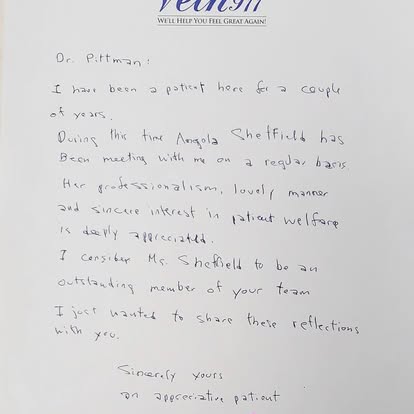 Vein911
WE'LL HELP YOU FEEL GREAT AGAIN!
Dr. Pittman:
I have been a patient here for a couple
of years.
During this time Angola Sheffield has
Been meeting with me on a regular basis.
Her professionalism, lovely manner
and sincere interest in patient welfare
is deeply appreciated.
I consider Ms. Sheffield to be an
outstanding member of your team
I just wanted to share these reflections
with you.
Sincerely yours
an appreciative patient